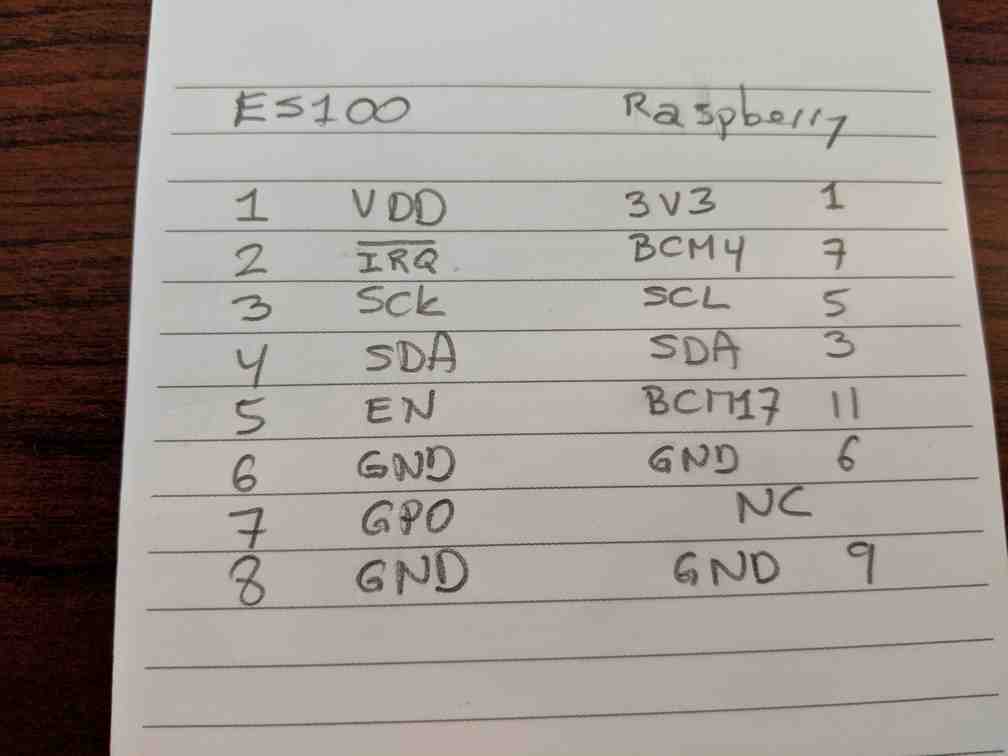 ES100 Raspberry
1 VDD 3V3 1
2 I̅R̅Q̅ BCM4 7
3 SCk SCL 5
4 SDA SDA 3
5 EN BCM17 11
6 GND GND 6
7 GPO NC
8 GND GND 9